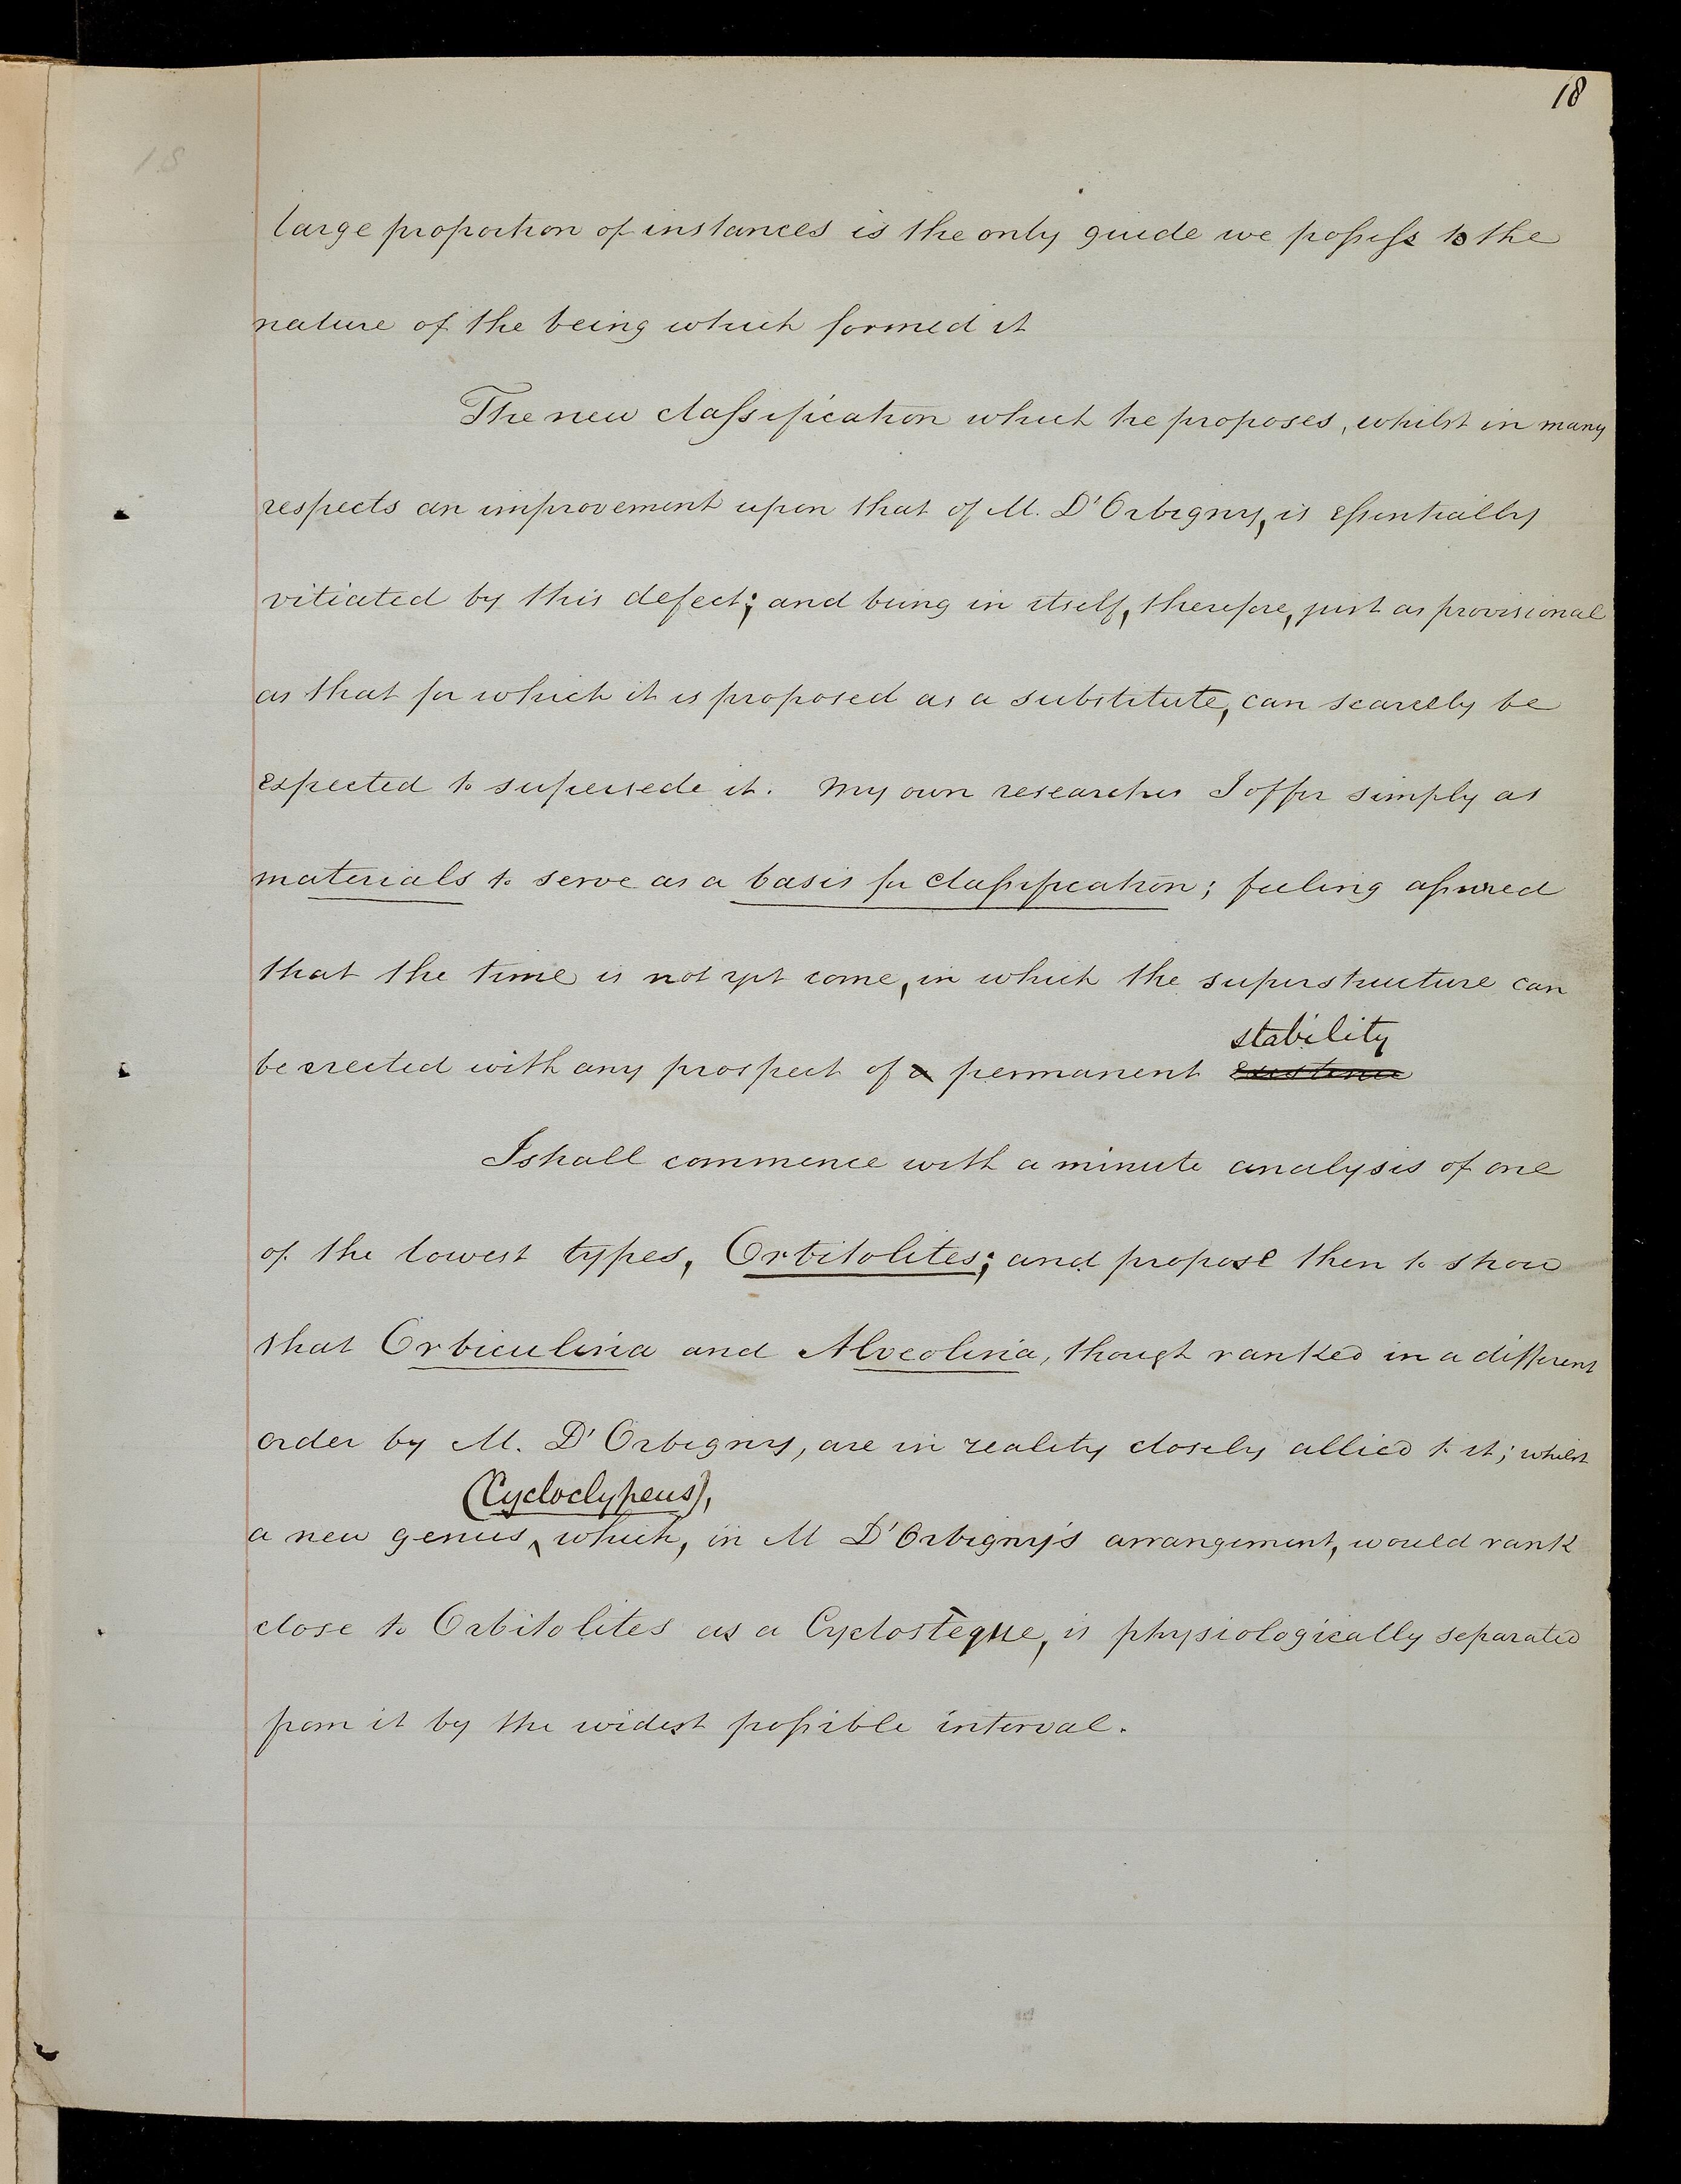 18
18
large proportion of instances is the only guide we possess to the
nature of the being which formed it
The new classification which he proposes, whilst in many
respects an improvement upon that of M. D'Orbigny, is essentially
vitiated by this defect; and being in itself, therefore, just as provisional
as that for which it is proposed as a substitute, can scarcely be
expected to supersede it. My own researches I offer simply as
materials to serve as a basis for classification; feeling assured
that the time is not yet come, in which the superstructure can
stability
be erected with any prospect of a permanent existence
I shall commence with a minute analysis of one
of the lowest types, Orbitolites; and propose then to show
that Orbiculina and Alveolina, though ranked in a different
order by M. D'Orbigny, are in reality closely allied to it; whilst
(Cycloclypeus),
a new genus, which, in M D'Orbigny's arrangement, would rank
close to Orbitolites as a Cyclostègue, is physiologically separated
from it by the widest possible interval.